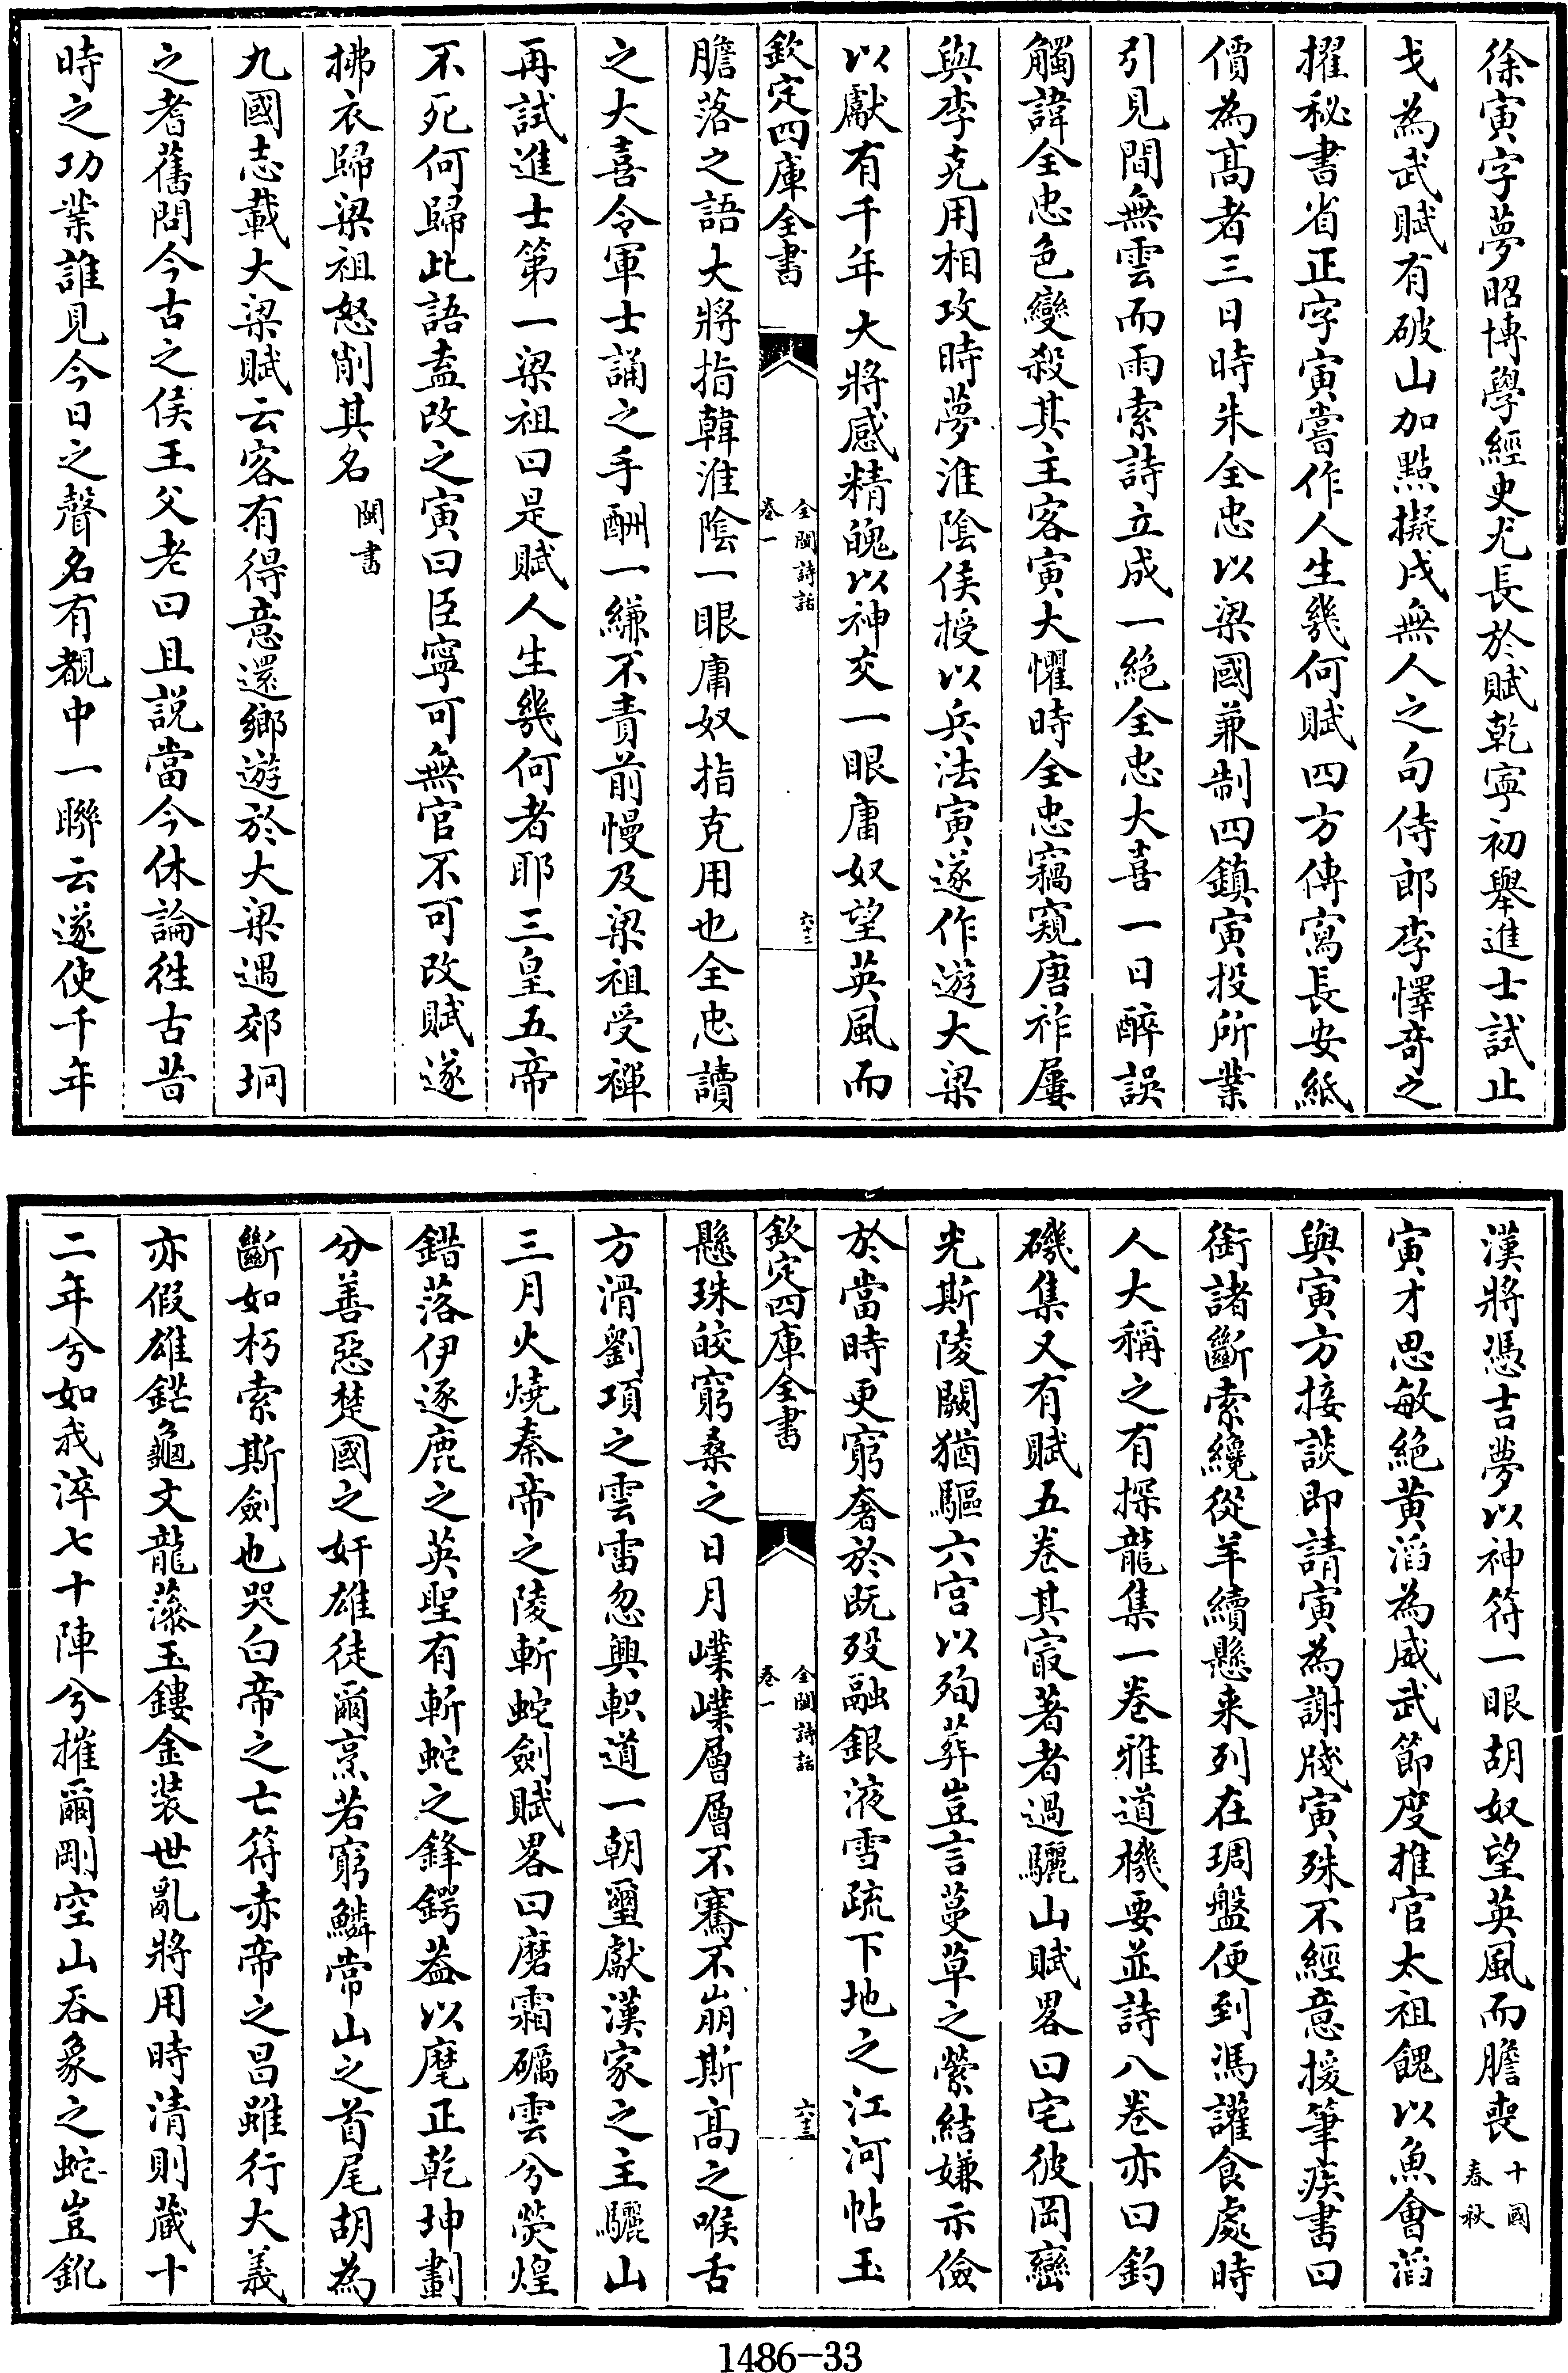 徐寅字夢昭博學經史尤長於賦乾寧初舉進士試止
戈為武賦有破山加點擬戌無人之句侍郎李懌奇之
擢秘書省正字寅嘗作人生幾何賦四方傳寫長安紙
價為髙者三日時朱全忠以梁國兼制四鎮寅投所業
引見間無雲而雨索詩立成一絶全忠大喜一日醉誤
觸諱全忠色變殺其主客寅大懼時全忠竊窺唐祚屢
與李克用相攻時夢淮陰侯授以兵法寅遂作遊大梁
以獻有千年大將感精魄以神交一眼庸奴望英風而
欽定四庫全書
全閩詩話
卷一
六十二
膽落之語大將指韓淮陰一眼庸奴指克用也全忠讀
之大喜令軍士誦之手酬一縑不責前慢及梁祖受禪
再試進士第一梁祖曰是賦人生幾何者耶三皇五帝
不死何歸此語盍改之寅曰臣寧可無官不可改賦遂
拂衣歸梁祖怒削其名閩書
九國志載大梁賦云客有得意還鄉遊於大梁遇郊坰
之耆舊問今古之侯王父老曰且説當今休論徃古昔
時之功業誰見今日之聲名有覩中一聯云遂使千年
漢將憑吉夢以神符一眼胡奴望英風而膽喪十國
春秋
寅才思敏絶黄滔為威武節度推官太祖餽以魚會滔
與寅方接談即請寅為謝牋寅殊不經意援筆疾書曰
銜諸斷索纔從羊續懸来列在琱盤便到馮讙食處時
人大稱之有探龍集一卷雅道機要並詩八卷亦曰釣
磯集又有賦五卷其㝡著者過驪山賦畧曰宅彼岡巒
光斯陵闕猶驅六宫以殉葬豈言蔓草之縈結嫌示儉
於當時更窮奢於既殁融銀液雪疏下地之江河帖玉
欽定四庫全書
全閩詩話
卷一
六十三
懸珠皎窮桑之日月嶫嶫層層不騫不崩斯髙之喉舌
方滑劉項之雲雷忽興軹道一朝璽獻漢家之主驪山
三月火燒秦帝之陵斬蛇劍賦畧曰磨霜礪雲兮熒煌
錯落伊逐鹿之英聖有斬蛇之鋒鍔葢以麾正乾坤劃
分善惡楚國之奸雄徒爾烹若窮鱗常山之首尾胡為
斷如朽索斯劍也哭白帝之亡符赤帝之昌雖行大義
亦假雄鋩龜文龍藻玉鏤金装世亂將用時清則藏十
二年兮如我淬七十陣兮摧爾剛空山吞象之蛇豈釓
1486-33